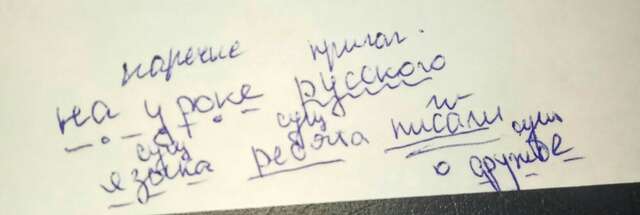 наречие прилаг.
на уроке русского
сущ сущ гл сущ
языка ребята писали о дружбе